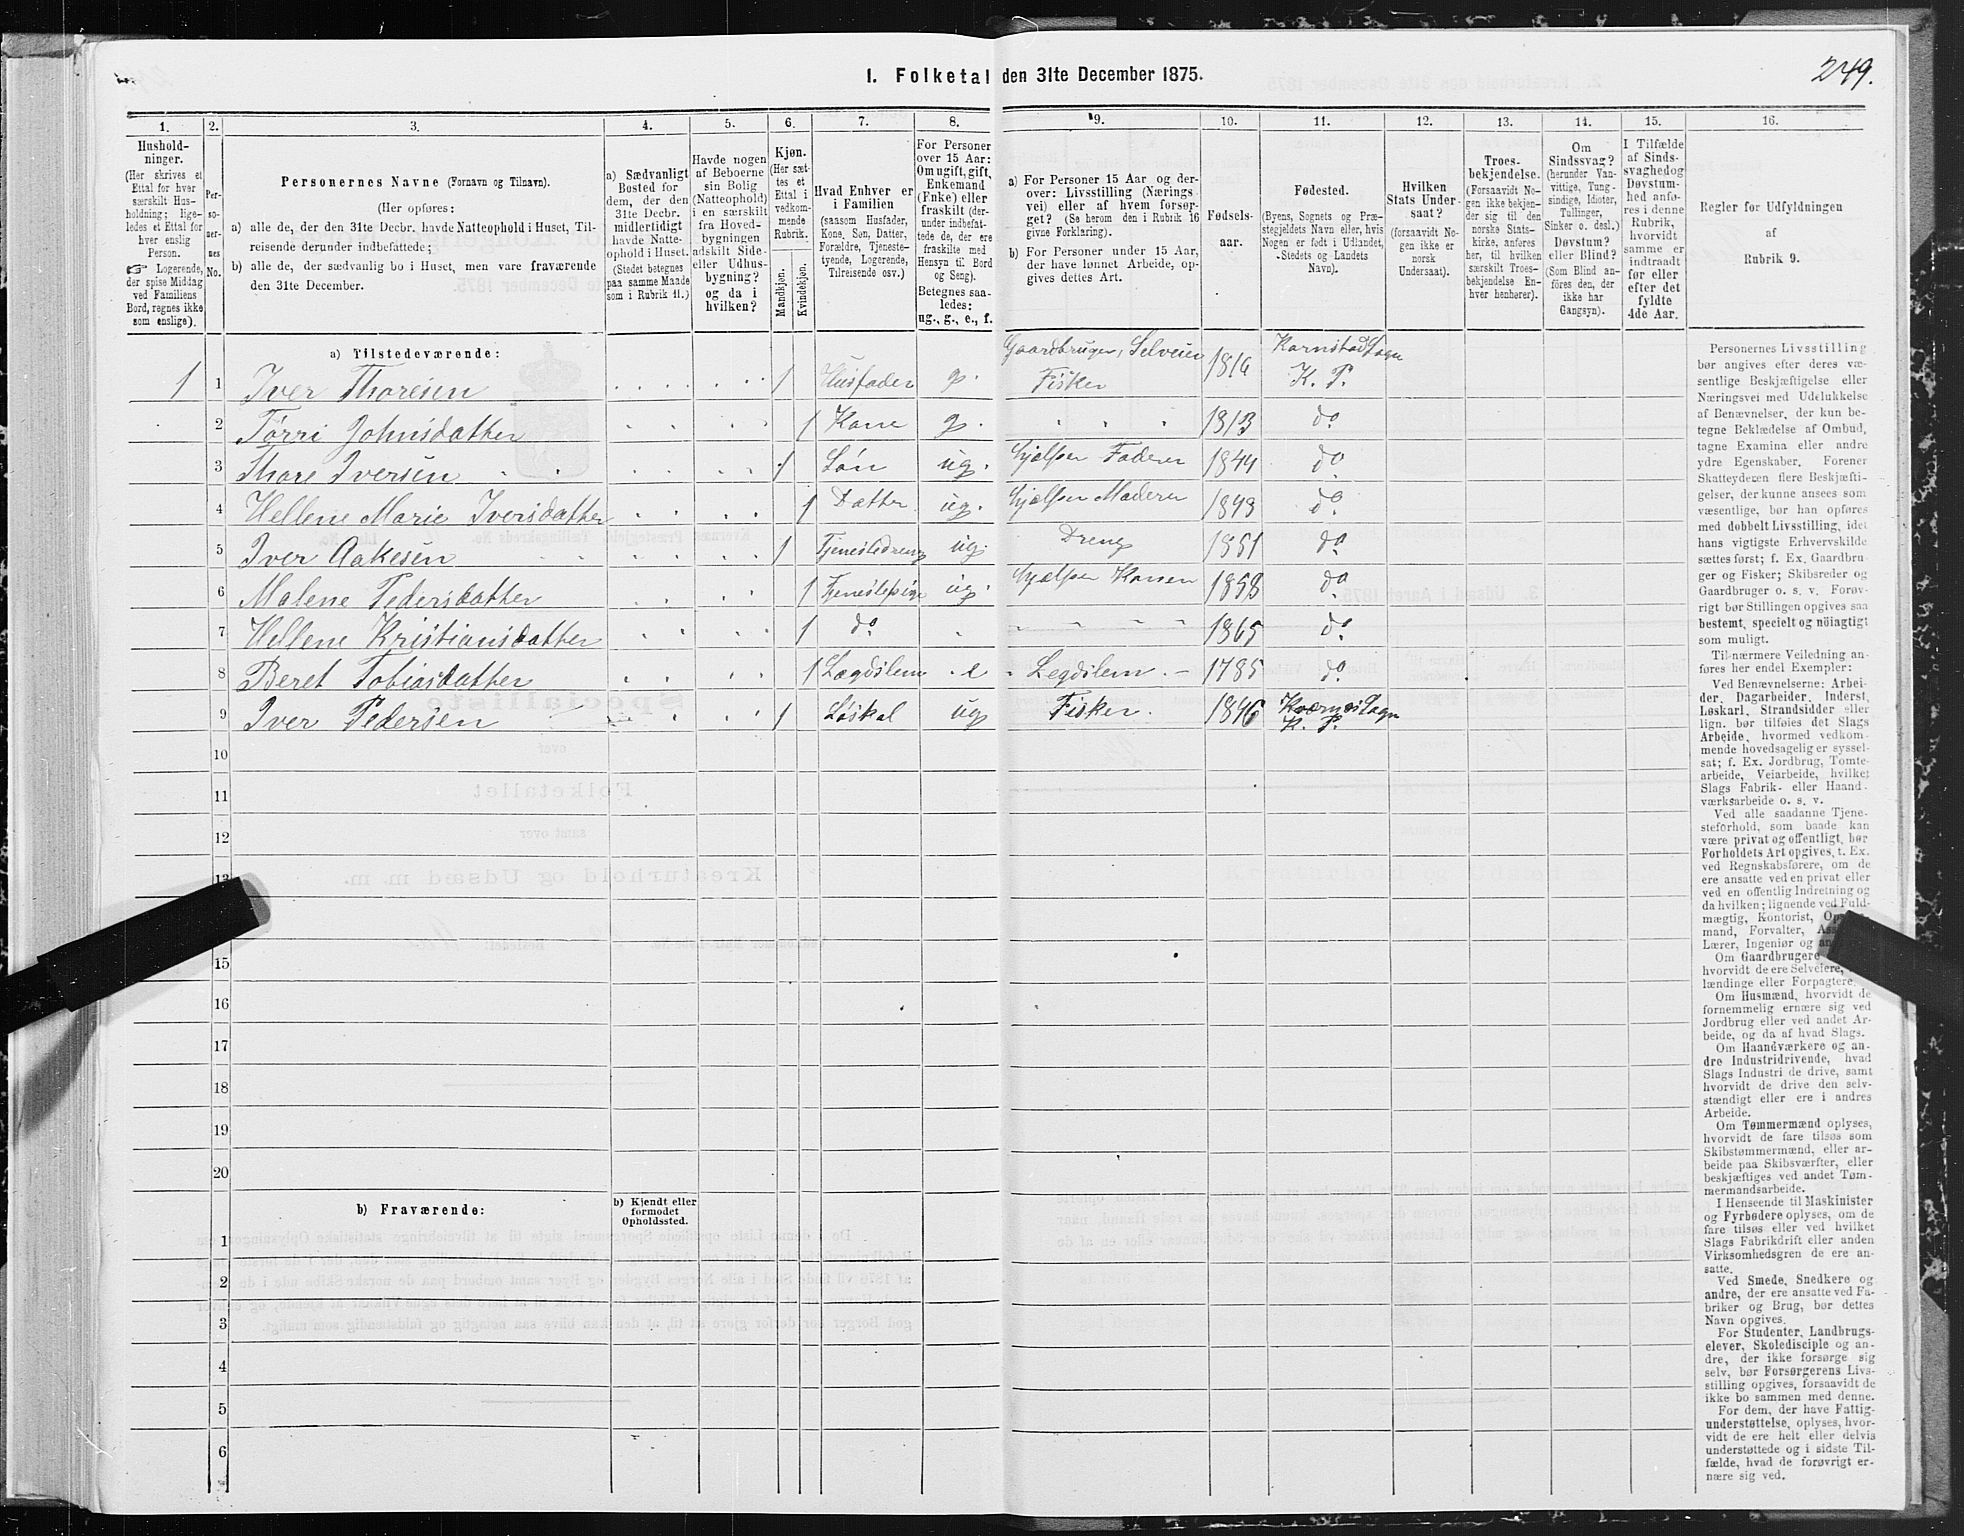 I. Folketal den 31te December 1875.
249.
1.
2.
3.
4.
5.
6.
7.
8.
9.
10.
11.
12.
13.
14.
15.
16.
Hushold-
ninger.
(Her skrives et
Ettal for hver
særskilt Hus-
holdning; lige-
ledes et Ettal for
hver enslig
Person.
☞ Logerende,
der spise Middag
ved Familiens
Bord, regnes ikke
som enslige).
Per-
so-
ner-
nes
No.
Personernes Navne (Fornavn og Tilnavn).
(Her opføres:
a) alle de, der den 31te Decbr. havde Natteophold i Huset, Til-
reisende derunder indbefattede;
b) alle de, der sædvanlig bo i Huset, men vare fraværende
den 31te December.
a) Sædvanligt
Bosted for
dem, der den
31te Decbr.
midlertidigt
havde Natte-
ophold i Huset.
(Stedet betegnes
paa samme Maade
som i Rubrik 11.)
Havde nogen
af Beboerne
sin Bolig
(Natteophold)
i en særskilt
fra Hoved-
bygningen
adskilt Side-
eller Udhus-
bygning?
og da i
hvilken?
Kjøn.
(Her sæt-
tes et
Ettal i
vedkom-
mende
Rubrik.
Mandkjøn.
Kvindekjøn.
Hvad Enhver er
i Familien
(saasom Husfader,
Kone, Søn, Datter,
Forældre, Tjeneste-
tyende, Logerende,
Tilreisende osv.)
For Personer
over 15 Aar:
Om ugift, gift,
Enkemand
(Enke) eller
fraskilt (der-
under indbefat-
tede de, der ere
fraskilte med
Hensyn til Bord
og Seng).
Betegnes saa-
ledes:
ug., g., e., f.
a) For Personer 15 Aar og der-
over: Livsstilling (Nærings-
vei) eller af hvem forsør-
get? (Se herom den i Rubrik 16
givne Forklaring).
b) For Personer under 15 Aar,
der have lønnet Arbeide, op-
gives dettes Art.
Fødsels-
aar.
Fødested.
(Byens, Sognets og Præ-
stegjeldets Navn eller, hvis
Nogen er født i Udlandet,
Stedets og Landets
Navn).
Hvilken
Stats Under-
saat?
(forsaavidt No-
gen ikke er
norsk
Undersaat).
Troes-
bekjendelse.
(Forsaavidt No-
gen ikke bekjen-
der sig til den
norske Stats-
kirke, anføres
her, til hvilken
særskilt Troes-
bekjendelse En-
hver henhører).
Om
Sindssvag?
(herunder Van-
vittige, Tung-
sindige, Idioter,
Tullinger,
Sinker o. desl.)
Døvstum?
eller Blind?
(Som Blind an-
føres den, der
ikke har
Gangsyn).
I Tilfælde
af Sinds-
svaghed og
Døvstum-
hed anfø-
res i denne
Rubrik,
hvorvidt
samme er
indtraadt
før eller
efter det
fyldte
4de Aar.
Regler for Udfyldningen
af
Rubrik 9.
a) Tilstedeværende:
1 1 Iver Thoresen 1 Husfader g. Gaardbruger, Selveier Fisker 1816 Kornstad Sogn K. P.
2 Törri Johnsdatter 1 Kone g. 1813 do
3 Thore Iversen 1 Søn ug. hjælper Faderen 1844 do
4 Hellene Marie Iversdatter 1 Datter ug. hjelper Moderen 1843 do
5 Iver Aakesen 1 Tjenestedreng ug. Dreng 1851 do
6 Malene Pedersdatter 1 Tjenestepige ug. hjælper Konen 1858 do
7 Hellene Kristiansdatter 1 do 1865 do
8 Beret Tobiasdatter 1 Lægdslem e Legdslem 1785 do
9 Iver Pedersen 1 Løskal ug Fisker 1846 Kværnes Sogn K. P.
10
11
12
13
15
16
17
18
19
20
b) Fraværende:
b) Kjendt eller
formodet
Opholdssted.
1
2
3
4
5
6
Personernes Livsstilling
bør angives efter deres væ-
sentlige Beskjæftigelse eller
Næringsvei med Udelukkelse
af Benævnelser, der kun be-
tegne Beklædelse af Ombud,
tagne Examina eller andre
ydre Egenskaber. Forener
Skatteyderen flere Beskjæfti-
gelser, der kunne ansees som
væsentlige, bør han opføres
med dobbelt Livsstilling, idet
hans vigtigste Erhvervskilde
sættes først; f. Ex. Gaardbru-
ger og Fisker; Skibsreder og
Gaardbruger o. s. v. Forøv-
rigt bør Stillingen opgives saa
bestemt, specielt og nöiagtigt
som muligt.
Til nærmere Veiledning an-
føres her endel Exempler:
Ved Benævnelserne: Arbei-
der, Dagarbeider, Inderst,
Løskarl, Strandsidder eller
lign. bør tilføies det Slags
Arbeide, hvormed vedkom-
mende hovedsagelig er syssel-
sat; f. Ex. Jordbrug, Tomte-
arbeide, Veiarbeide, hvilket
Slags Fabrik- eller Haand-
værksarbeide o. s. v.
Ved alle saadanne Tjene-
steforhold, som baade kan
være privat og offentligt, bør
Forholdets Art opgives, t. Ex.
ved Regnskabsførere, om de
ere ansatte ved en privat eller
ved en offentlig Indretning og
da hvilken; lignende ved Fuld-
mægtig, Kontorist,
mand, Forvalter,
Lærer, Ingeniør og
Om Gaardbrugere
hvorvidt de ere Selveiere,
lændinge eller Forpagtere.
Om Husmænd, hvorvidt de
fornemmelig ernære sig ved
Jordbrug eller ved andet Ar-
beide, og da af hvad Slags.
Om Haandværkere og an-
dre Industridrivende, hvad
Slags Industri de drive, samt
hvorvidt de drive den selv-
stændigt eller ere i andres
Arbeide.
Om Tømmermænd oplyses,
hvorvidt de fare tilsøs som
Skibstømmermænd, eller ar-
beide paa Skibsværfter, eller
beskjæftiges ved andet Tøm-
mermandsarbeide.
I Henseende til Maskinister
og Fyrbødere oplyses, om de
fare tilsøs eller ved hvilket
Slags Fabrikdrift eller anden
Virksomhedsgren de ere an-
satte.
Ved Smede, Snedkere og
andre, der ere ansatte ved Fa-
briker og Brug, bør dettes
Navn opgives.
For Studenter, Landbrugs-
elever, Skoledisciple og an-
dre, der ikke forsørge sig
selv, bør Forsørgerens Livs-
stilling opgives, forsaavidt de
ikke bo sammen med denne.
For dem, der have Fattig-
understøttelse, oplyses, hvor-
vidt de ere helt eller delvis
understøttede og i sidste Til-
fælde, hvad de forøvrigt er-
nære sig ved.